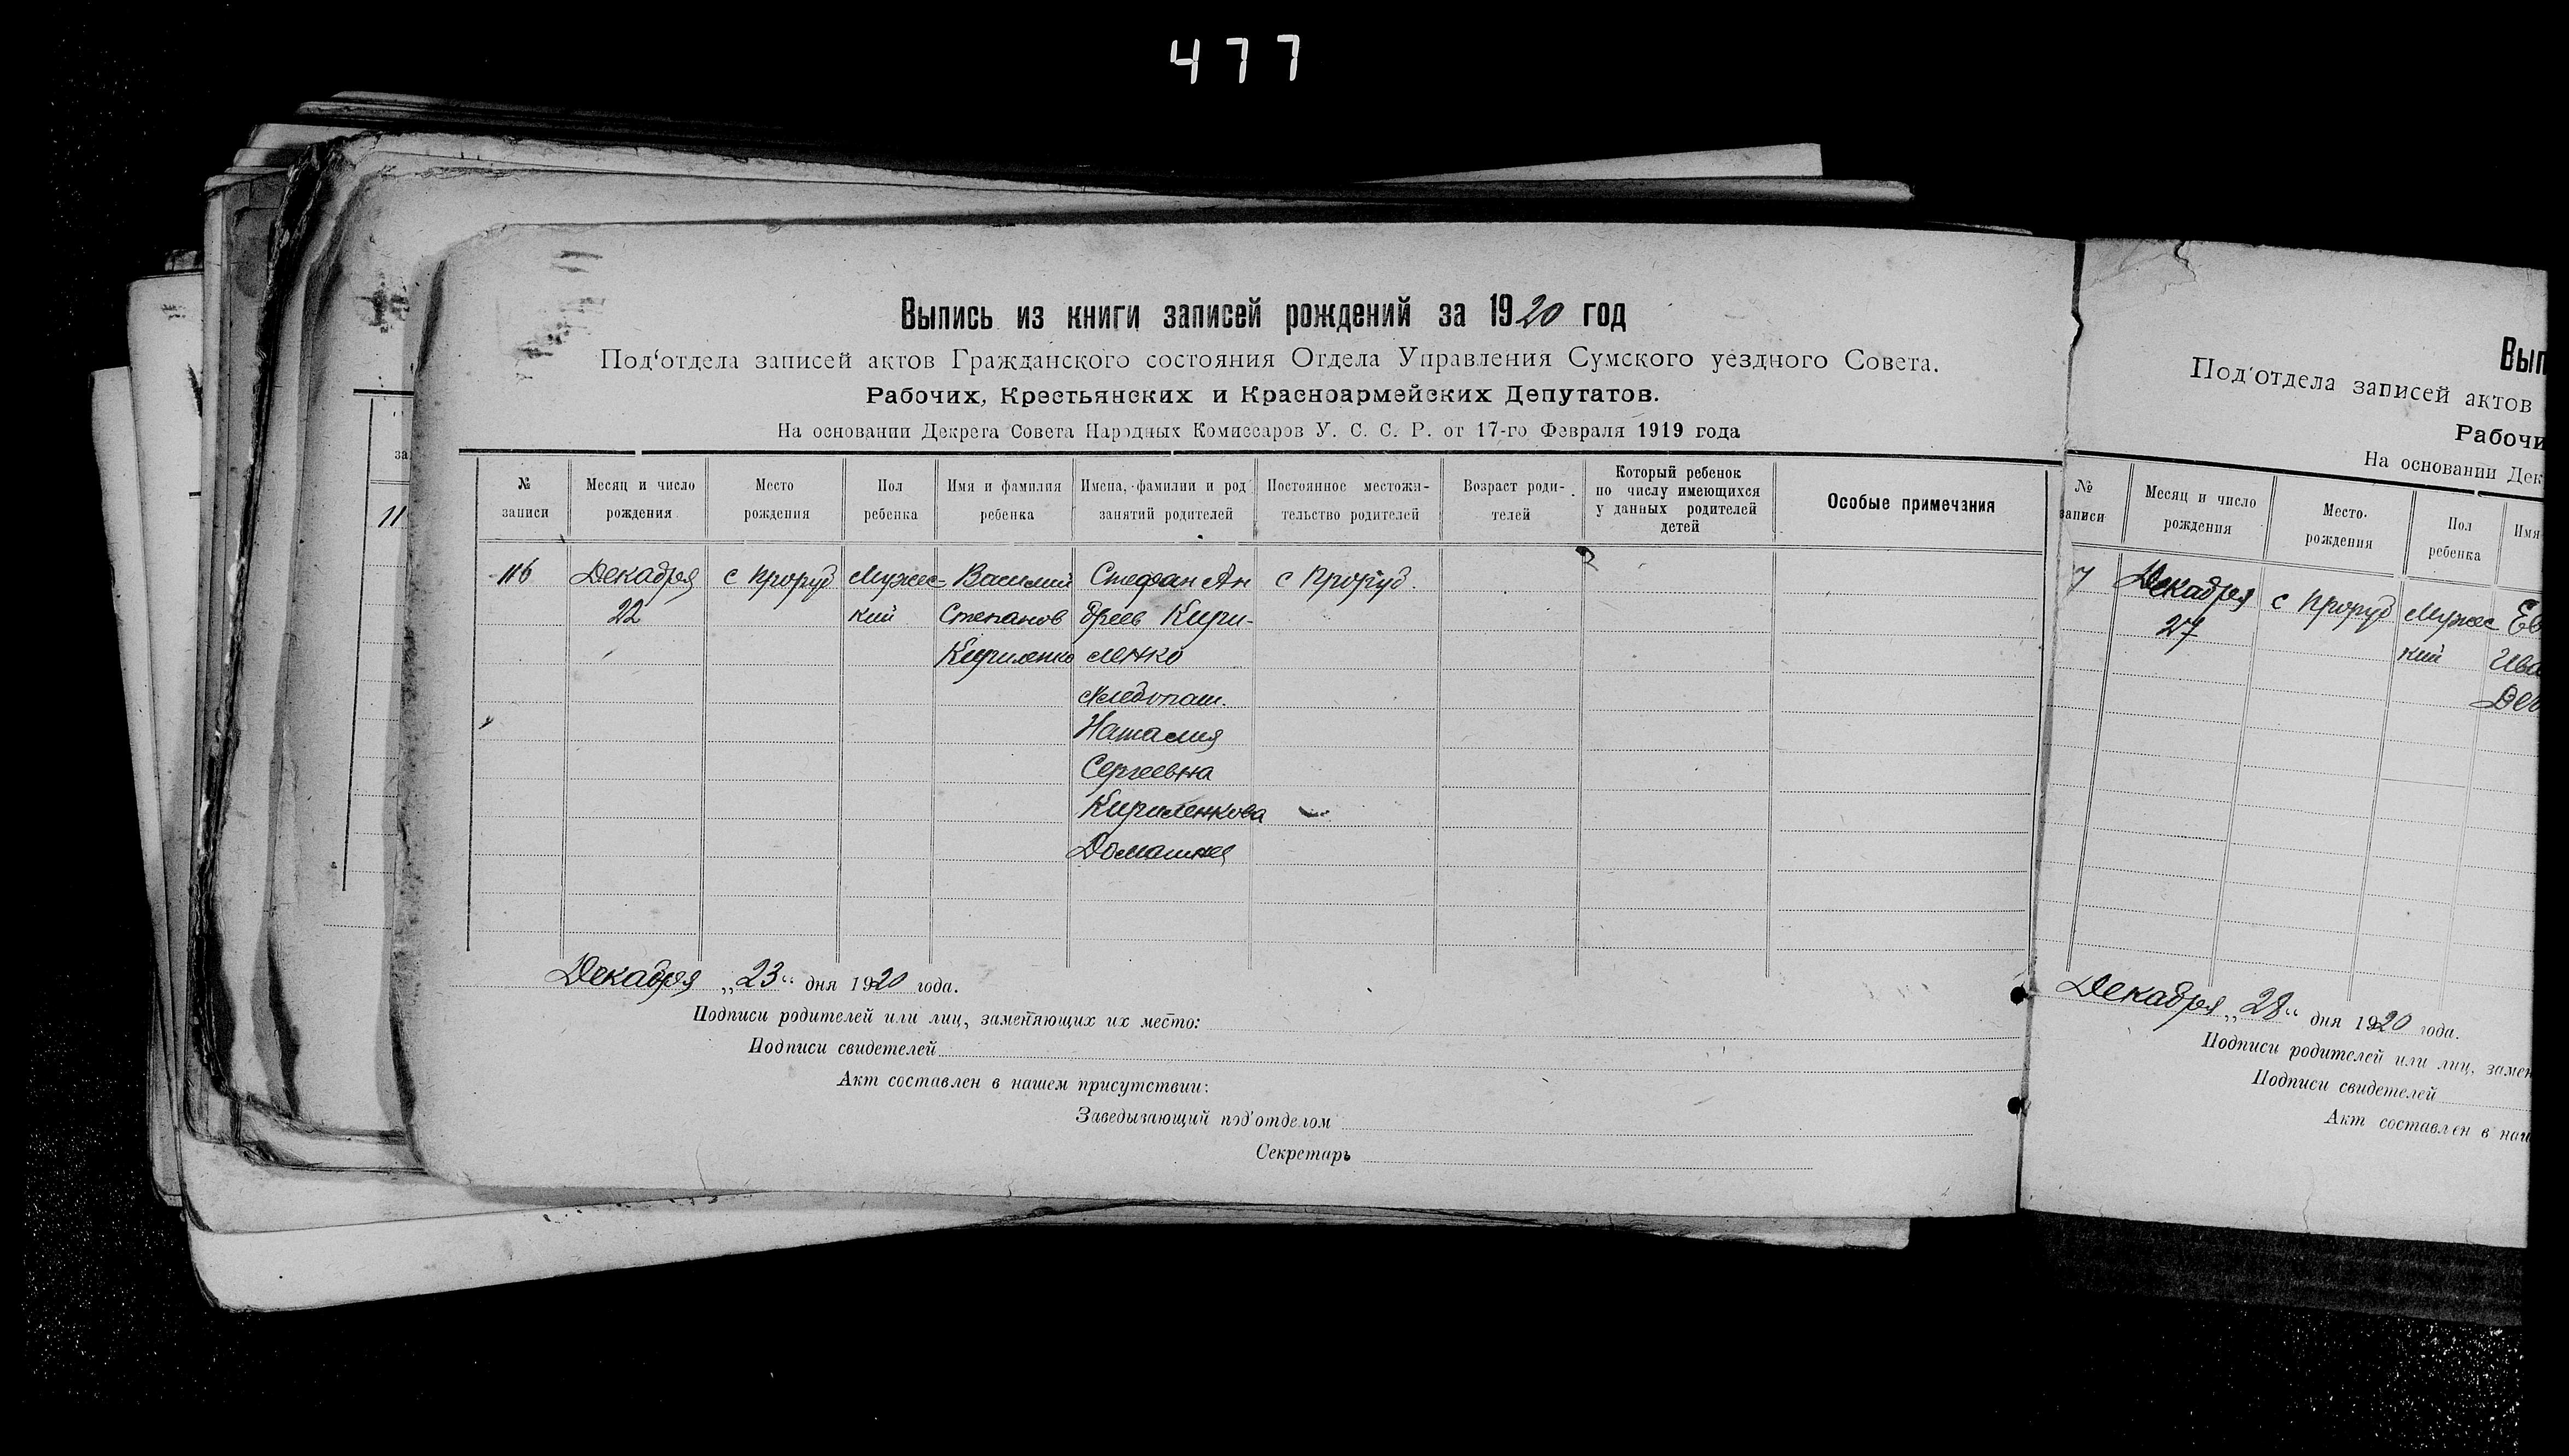 477
Выпись из книги записей рождений за 1920 год
Под'отдела записей актов Гражданского состояния Отдела Управления Сумского уездного Совета.
Рабочих, Крестьянских и Красноармейских Депутатов.
На основании Декрета Совета Народных Комиссаров У. С. С. Р. от 17-го Февраля 1919 года
№ записи
Месяц и число рождения
Место рождения
Пол ребенка
Имя и фамилия ребенка
Имена, фамилии и род занятий родителей
Постоянное местожительство родителей
Возраст родителей
Который ребенок по числу имеющихся у данных родителей детей
Особые примечания
116 Декабря с Проруб Мужес- Василий Стефан Ан с Проруб.
22 кий Степанов дреев Кири-
Кириленко ленко
хлебопаш.
Наталия
Сергеевна
Кириленкова
Домашняя
Декабря „23“ дня 1920 года.
Подписи родителей или лиц, заменяющих их место:
Подписи свидетелей
Акт составлен в нашем присутствии:
Заведывающий под'отделом
Секретарь
за
11
Вып
Под'отдела записей актов
Рабочи
На основании Дек
№ записи
Месяц и число рождения
Место рождения
Пол ребенка
Имя
7 Декабря с Проруб Мужес Ев
27 кий Ива
Декабря „28“ дня 1920 года.
Подписи родителей или лиц, замен
Подписи свидетелей
Акт составлен в наш